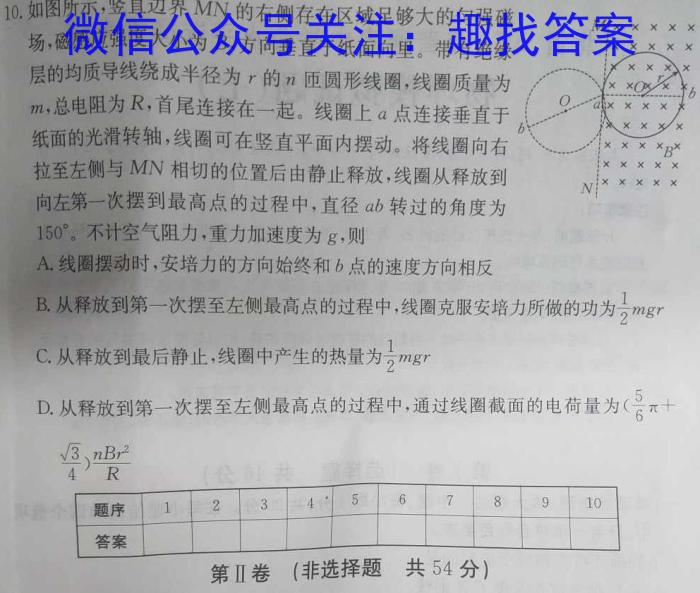 10. 如图所示,竖直边界 MN 的右侧存在区域足够大的匀强磁
场,磁感应强度大小为 B,方向垂直于纸面向里。带有绝缘
微信公众号关注：趣找答案
层的均质导线绕成半径为 r 的 n 匝圆形线圈,线圈质量为
m,总电阻为 R,首尾连接在一起。线圈上 a 点连接垂直于
纸面的光滑转轴,线圈可在竖直平面内摆动。将线圈向右
拉至左侧与 MN 相切的位置后由静止释放,线圈从释放到
向左第一次摆到最高点的过程中,直径 ab 转过的角度为
150°。不计空气阻力,重力加速度为 g,则
O
b
a
O
r
b
B
N
A. 线圈摆动时,安培力的方向始终和 b 点的速度方向相反
B. 从释放到第一次摆至左侧最高点的过程中,线圈克服安培力所做的功为 1/2 mgr
C. 从释放到最后静止,线圈中产生的热量为 1/2 mgr
D. 从释放到第一次摆至左侧最高点的过程中,通过线圈截面的电荷量为(5/6 π+
√3/4) nBr²/R
题序 1 2 3 4 5 6 7 8 9 10
答案
第Ⅱ卷 (非选择题 共 54 分)